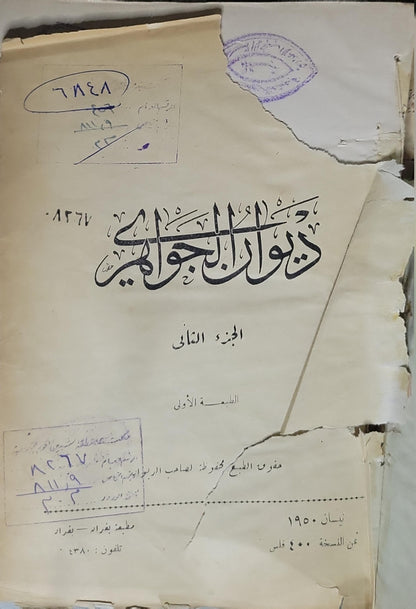 ٦٨٤٨
٨١١,٩
٨٢٦٧
ديوان الجواهري
الجزء الثاني
الطبعة الأولى
حقوق الطبع محفوظة لصاحب الديوان
٨٢٦٧
٨١١,٩
نيسان ١٩٥٠
مطبعة بغداد — بغداد
ثمن النسخة ٤٠٠ فلس
تلفون : ٤٣٨٠